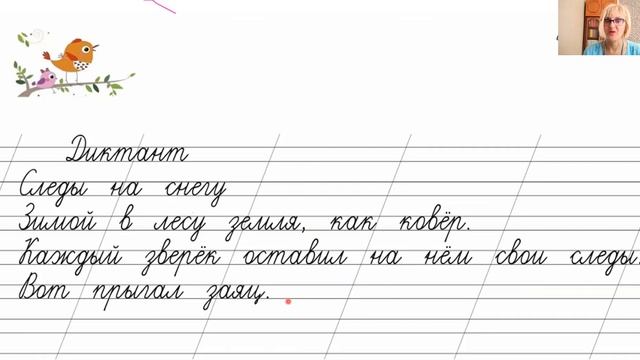 Диктант
Следы на снегу
Зимой в лесу земля, как ковёр.
Каждый зверёк оставил на нём свои следы.
Вот прыгал заяц.